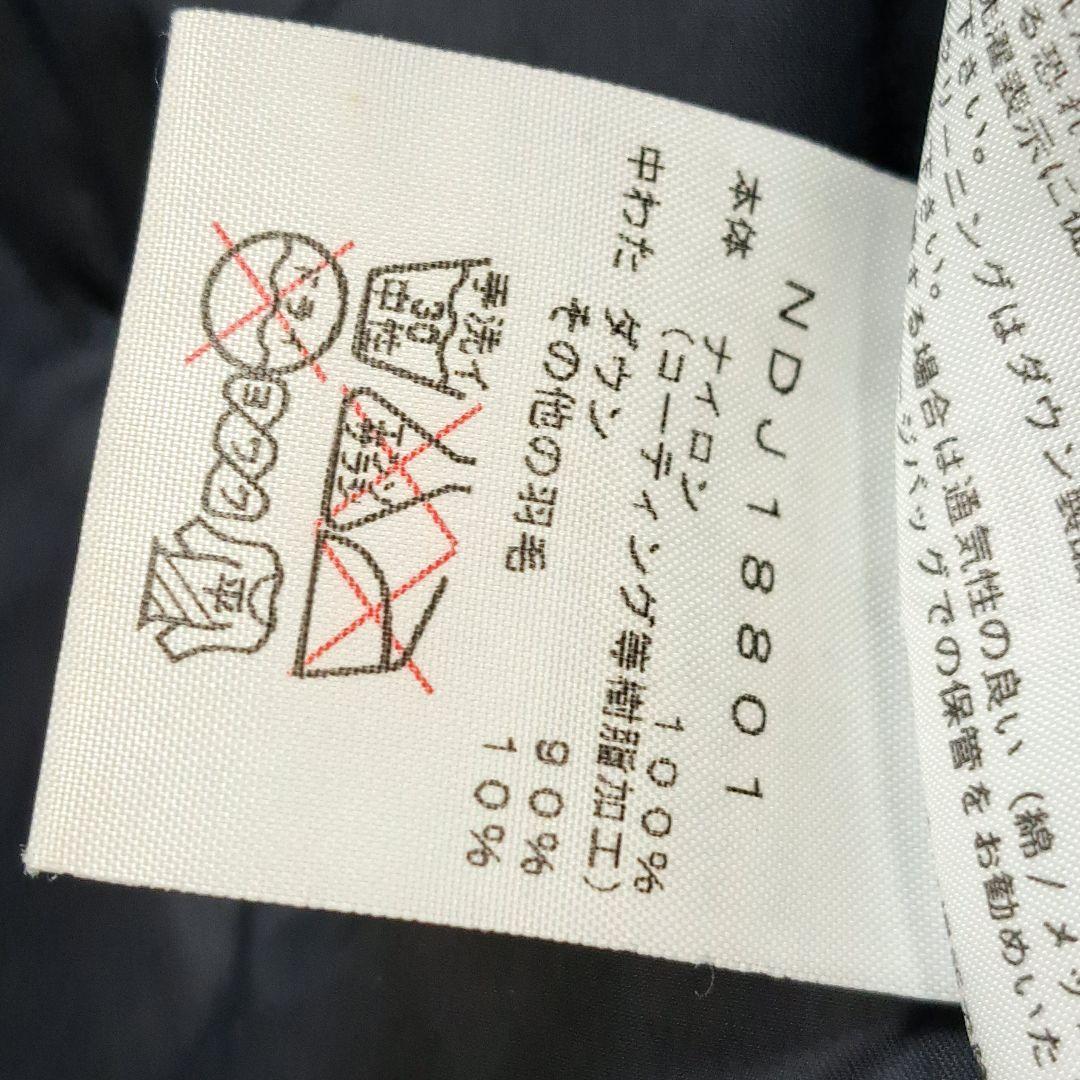 NDJ18801
本体 ナイロン 100%
(コーティング等樹脂加工)
中わた ダウン 90%
その他の羽毛 10%
手洗イ
30
中性
エンソ
サラシ
ドライ
平
る恐れ
洗濯表示に従
下さい。
ーニングはダウン製品
下さい。
る場合は通気性の良い (綿/メッ
バッグでの保管をお勧めいた